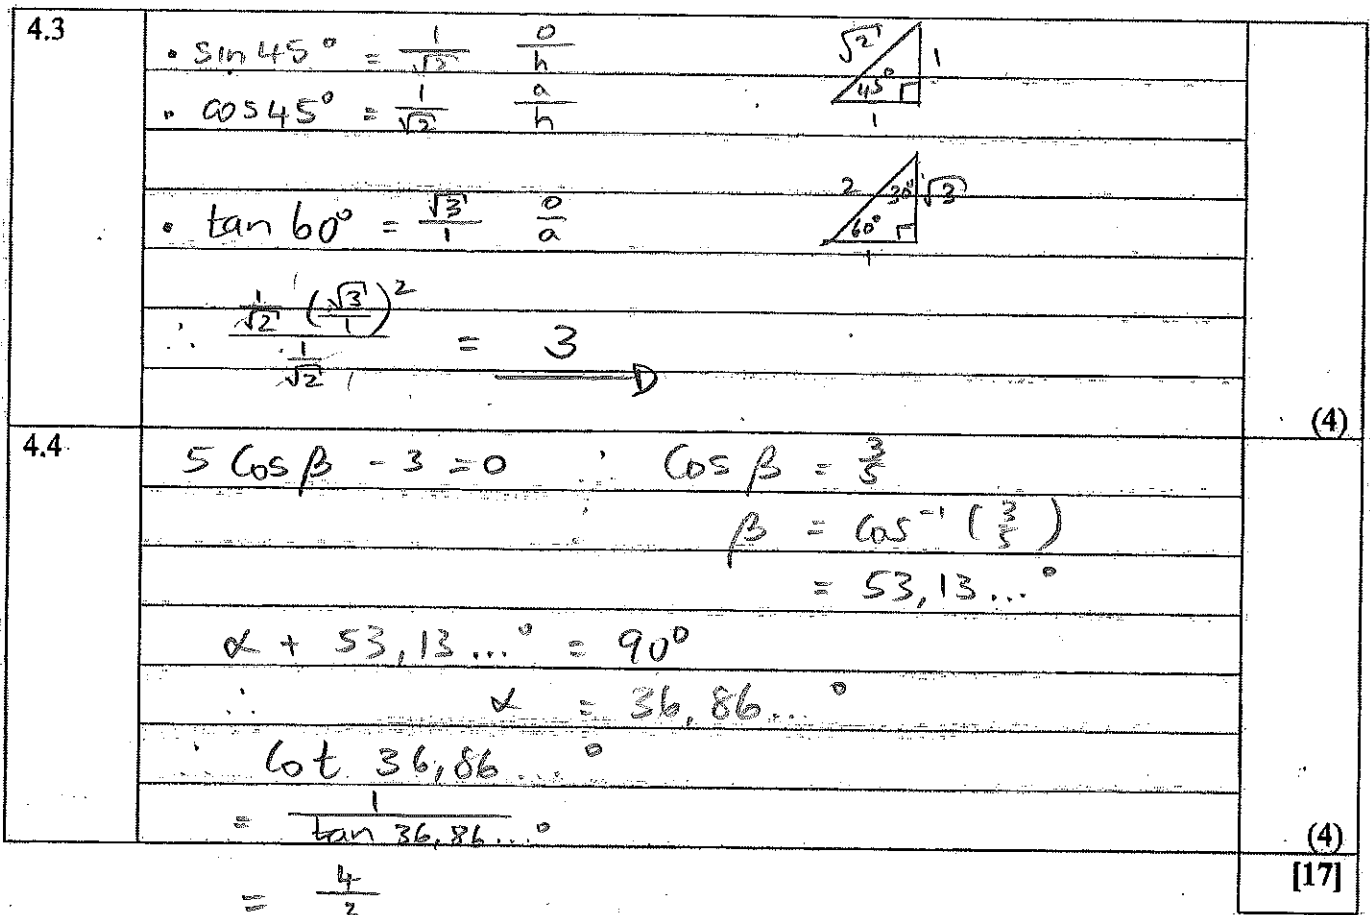 4.3
• sin 45° = 1/√2 o/h
√2 1 45° 1
• cos 45° = 1/√2 a/h
2 30° √3 60° 1
• tan 60° = √3/1 o/a
∴ (1/√2 (√3/1)²)/(1/√2) = 3
(4)
4.4
5 Cos β - 3 = 0 ∴ Cos β = 3/5
∴ β = Cos⁻¹ (3/5)
= 53,13...°
α + 53,13...° = 90°
∴ α = 36,86...°
∴ Cot 36,86...°
= 1/tan 36,86...°
(4)
[17]
= 4/